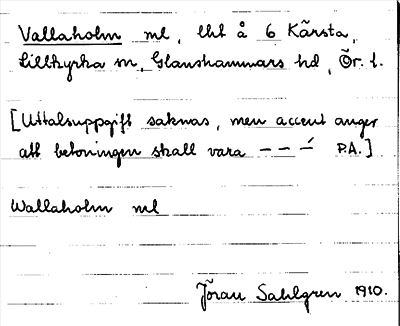 Vallaholm ml, lht å 6 Kårsta,
Lillkyrka sn, Glanshammars hd, Ör. l.
[Uttalsuppgift saknas, men accent anger
att betoningen skall vara – – –́ P.A.]
Wallaholm ml
Jöran Sahlgren 1910.